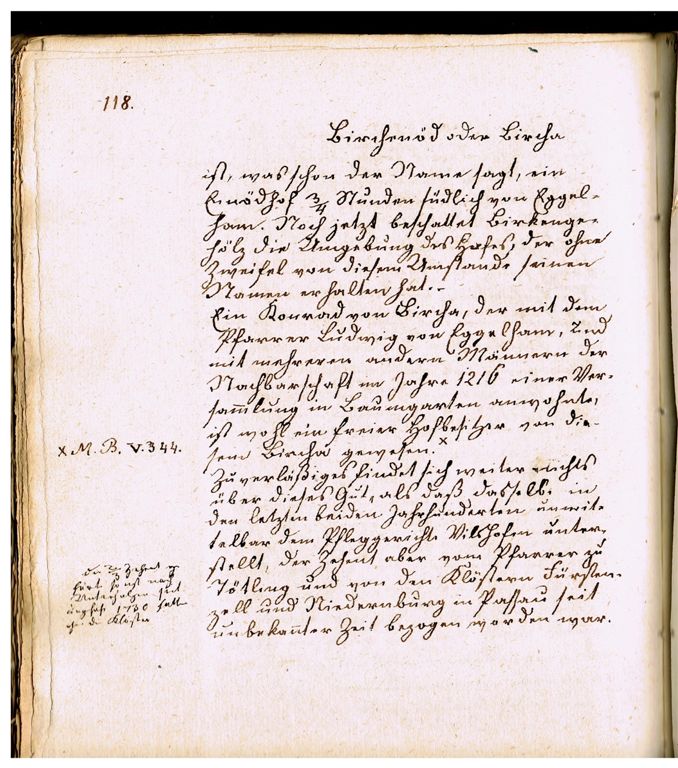 118.
Birchenöd oder Bircha
ist, was schon der Name sagt, ein
Einödhof 3/4 Stunden südlich von Eggel-
ham. Noch jetzt beschattet Birkenge-
hölz die Umgebung des Hofes, der ohne
Zweifel von diesem Umstande seinen
Namen erhalten hat.-
Ein Konrad von Bircha, der mit dem
Pfarrer Ludwig von Eggelham, und
mit mehreren andern Männern der
Nachbarschaft im Jahre 1216 einer Ver-
sammlung in Baumgarten anwohnte,
ist wohl ein freier Hofbesitzer von die-
sem Bircha gewesen. x
x M. B. V. 344.
Zuverläßiges findet sich weiter nichts
über dieses Gut, als daß dasselbe in
den letzten beiden Jahrhunderten unmit-
telbar dem Pfleggerichte Vilshofen unter-
stellt, der Zehent aber vom Pfarrer zu
Tötling und von den Klöstern Fürsten-
zell und Niedernburg in Passau seit
unbekannter Zeit bezogen worden war.
Zehent
nach
1730
die Klöster